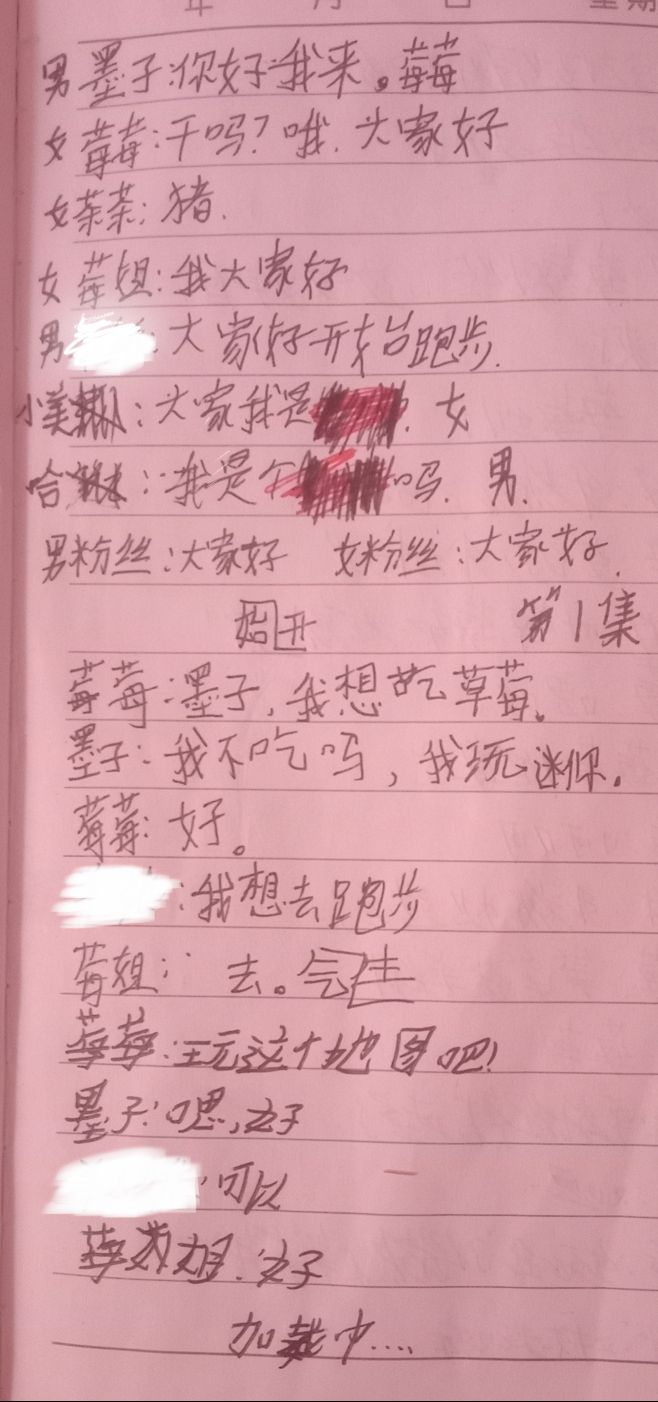 年 月 日 星期
男墨子:你好.我来。莓莓
女莓莓:干吗?哦.大家好
女茶茶:猪.
女莓姐:我大家好
男 :大家好开始跑步.
小美 :大家我是 . 女
哈 :我是个 吗. 男.
男粉丝:大家好 女粉丝:大家好.
始开 第1集
莓莓:墨子,我想吃草莓。
墨子:我不吃吗,我玩迷你.
莓莓:好。
:我想去跑步
莓姐: 去。
莓莓:玩这个地图吧!
墨子:嗯,好
:可以
莓 :好
加载中....